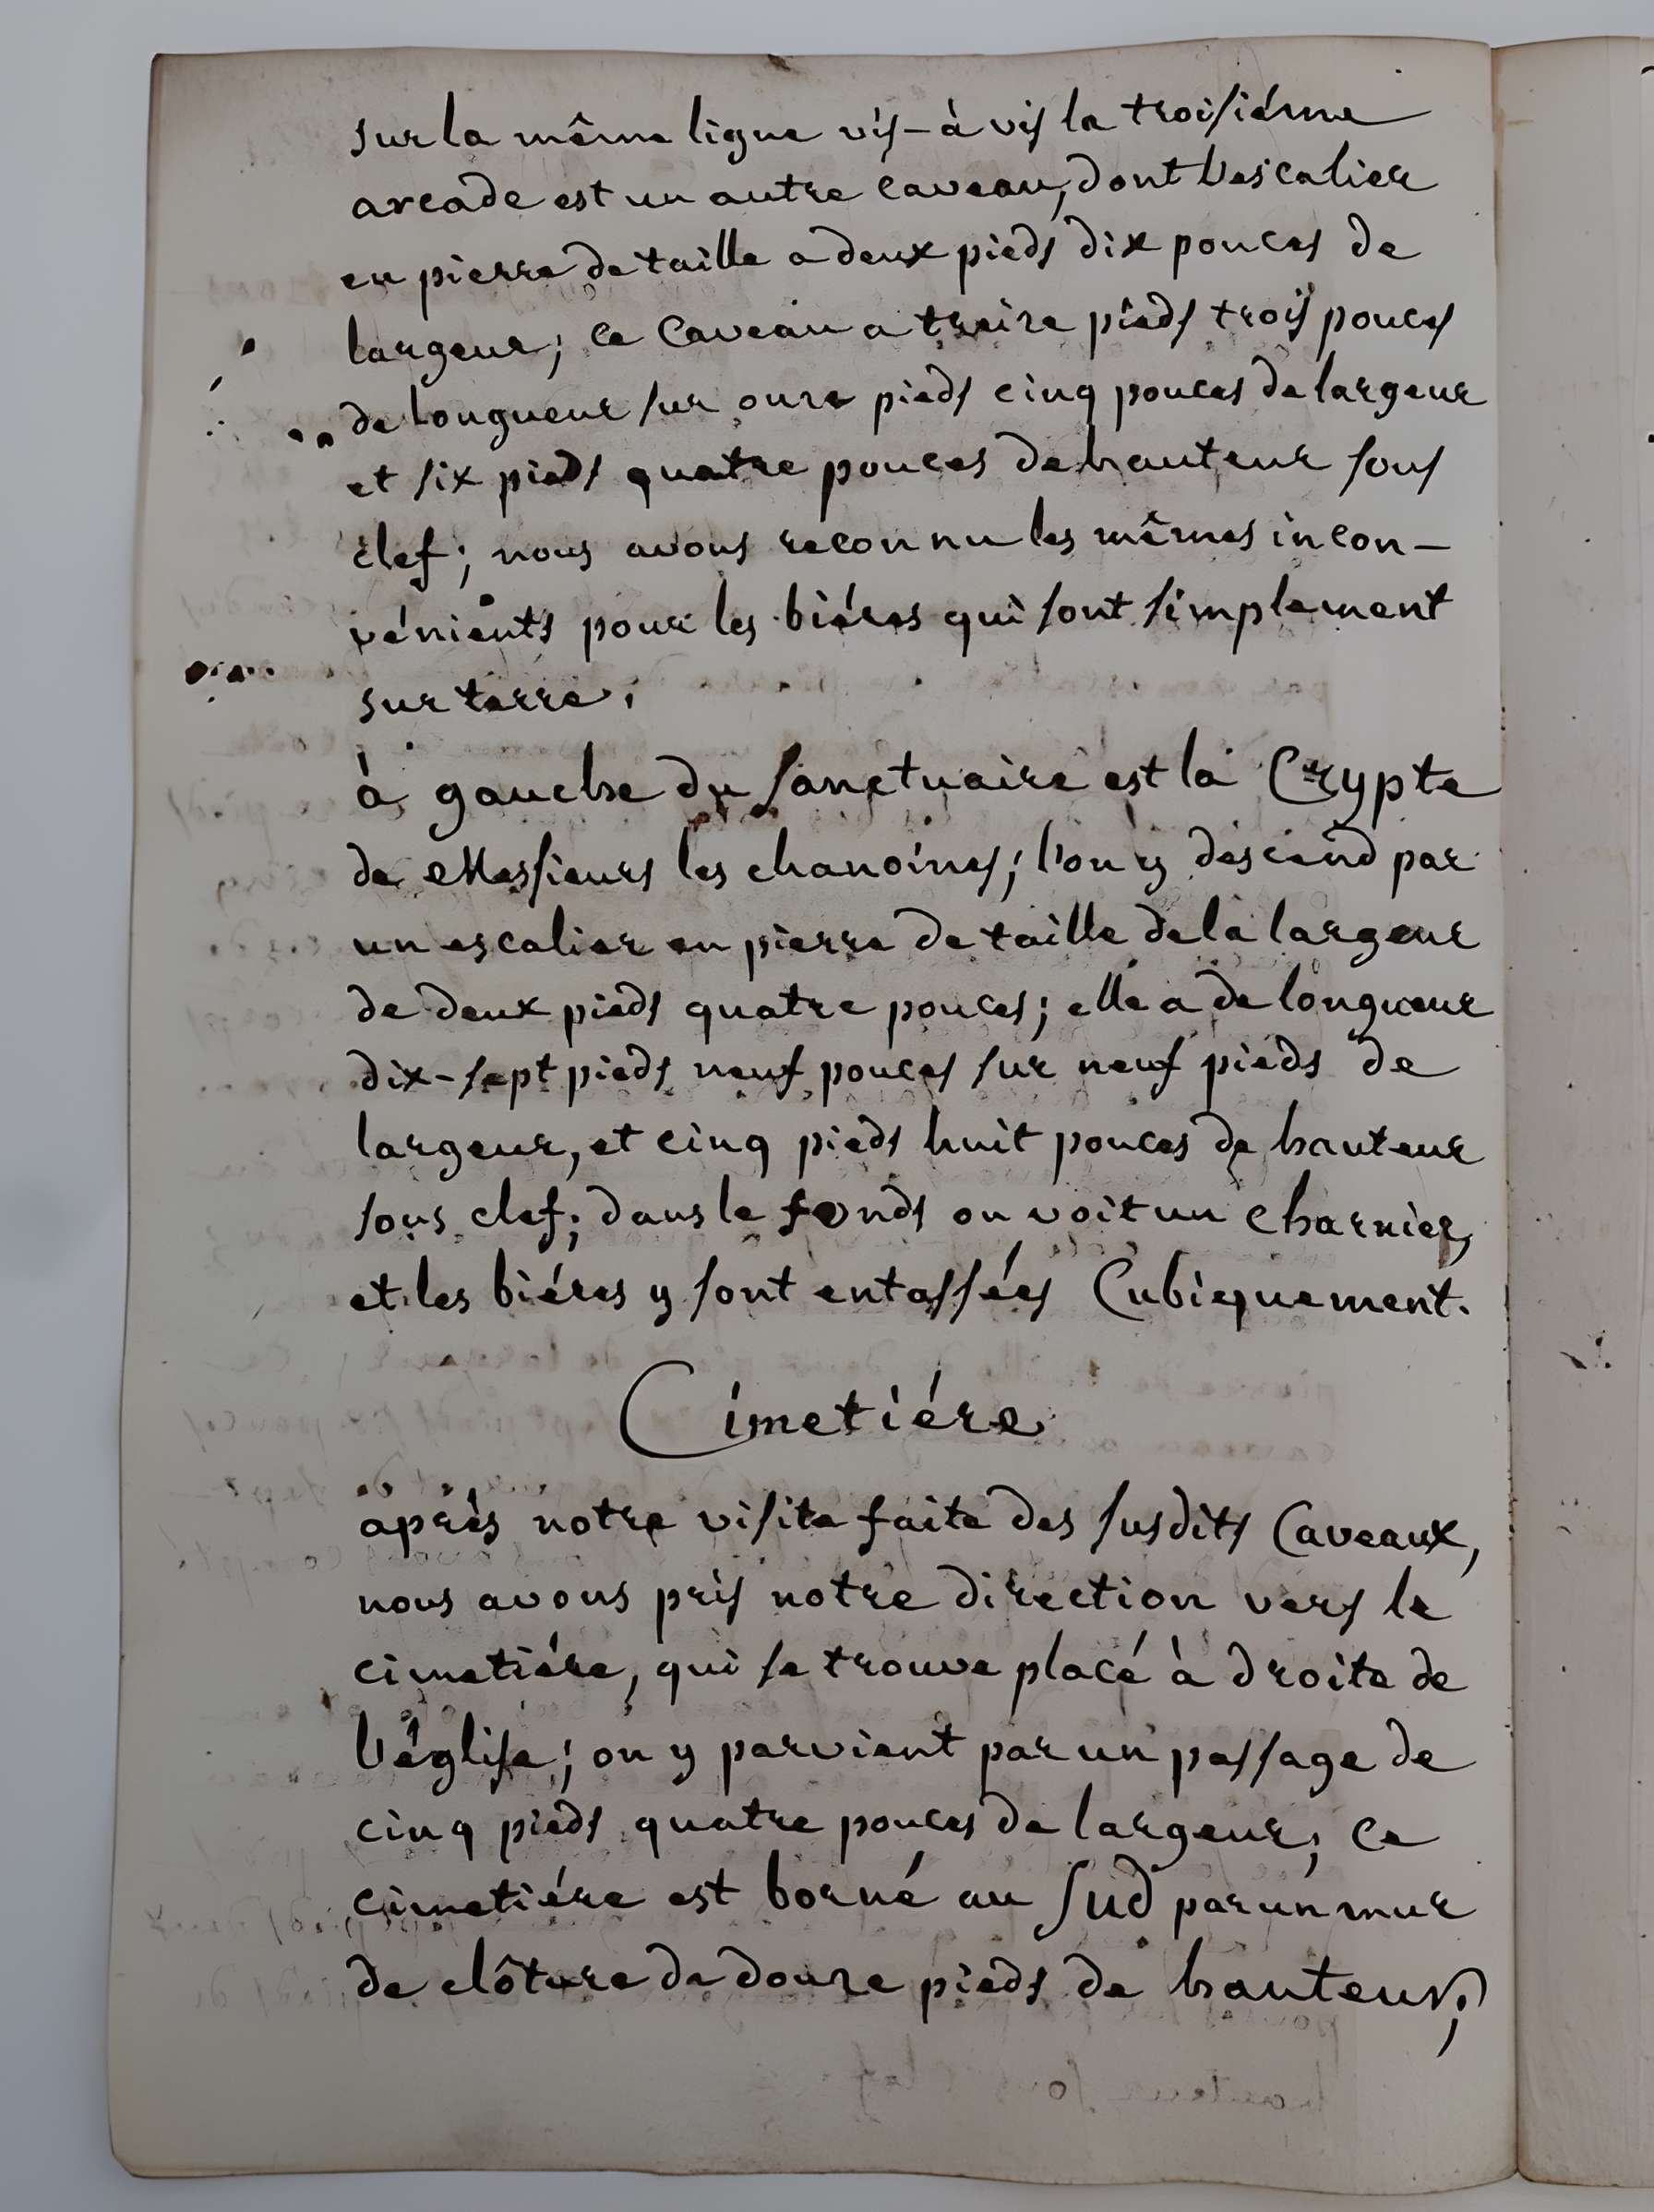 sur la même ligne vis-à vis la troisiéme
arcade est un autre caveau, dont l'escalier
en pierre de taille a deux pieds dix pouces de
largeur; ce Caveau a treize pieds trois pouces
de longueur sur onze pieds cinq pouces de largeur
et six pieds quatre pouces de hauteur sous
clef; nous avons reconnu les mêmes incon-
vénients pour les biéres qui sont simplement
sur terre.
à gauche du sanctuaire est la Crypte
de Messieurs les chanoines; l'on y descend par
un escalier en pierre de taille de la largeur
de deux pieds quatre pouces; elle a de longueur
dix-sept pieds neuf pouces sur neuf pieds de
largeur, et cinq pieds huit pouces de hauteur
sous clef; dans le fonds on voit un charnier,
et les biéres y sont entassées Cubiquement.
Cimetiére
après notre visite faite des susdits Caveaux,
nous avons pris notre direction vers le
cimetiére, qui se trouve placé à droite de
l'église; on y parvient par un passage de
cinq pieds quatre pouces de largeur; ce
cimetiére est borné au Sud par un mur
de clôture de douze pieds de hauteur;